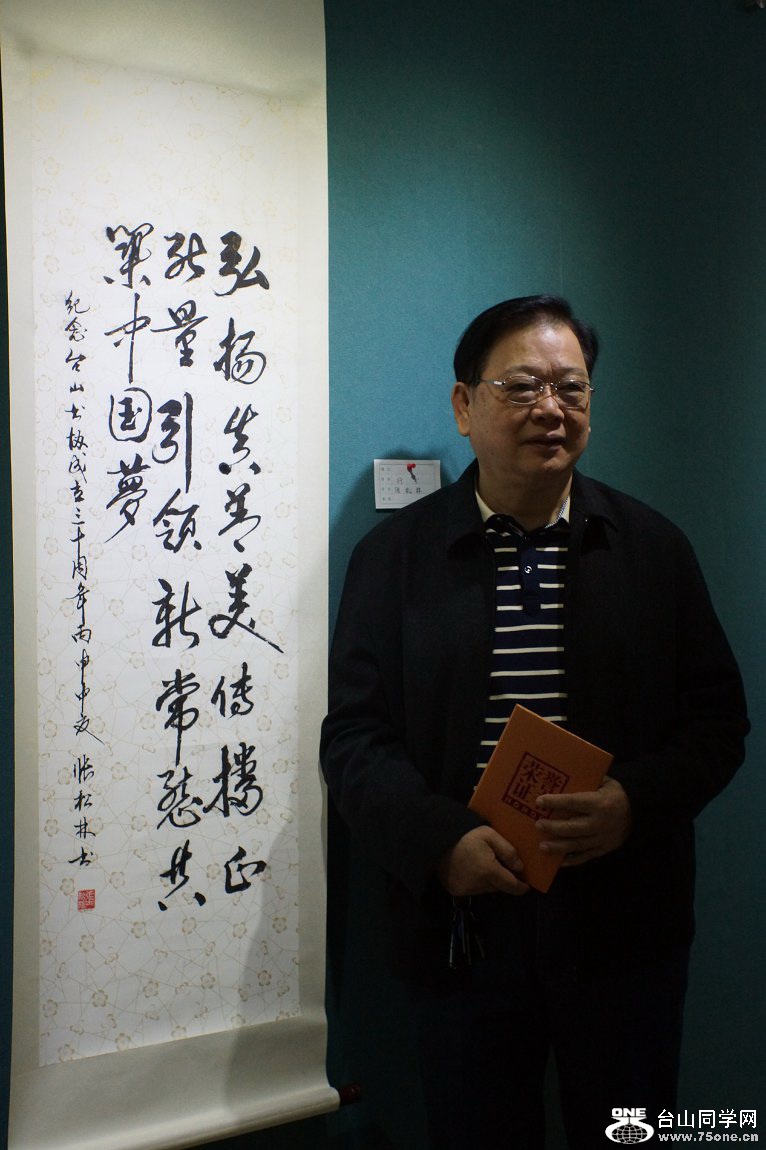 弘扬真善美传播正
能量引领新常态共
筑中国梦
纪念台山书协成立三十周年丙申中夏 张松林书
行
张松林
荣誉
证
ONE
台山同学网
www.75one.cn